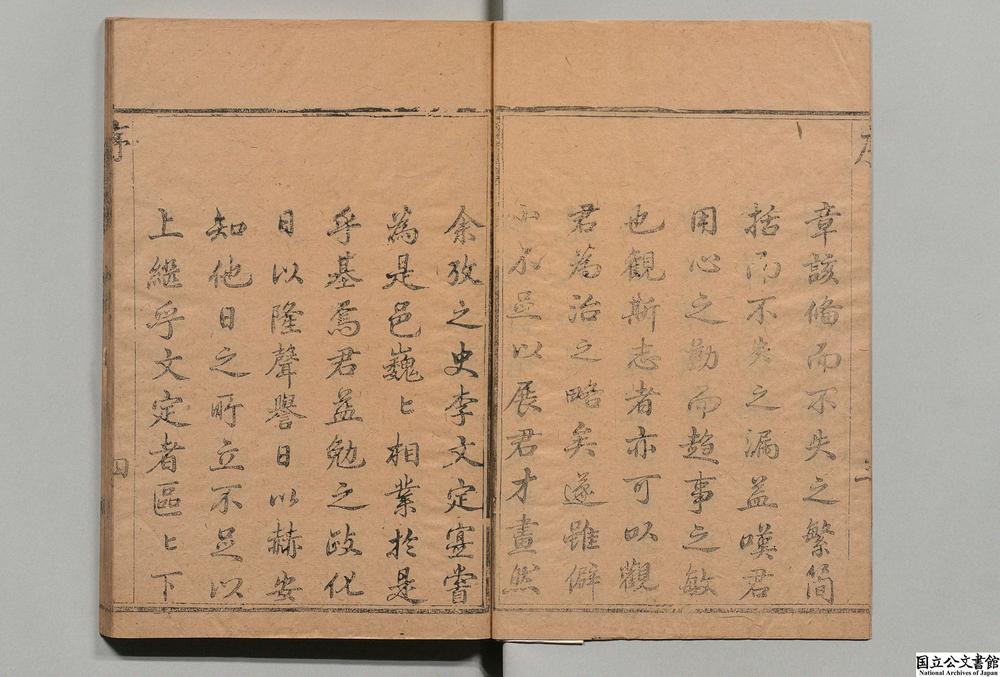 章該俻而不失之繁簡
括而不失之漏益嘆君
用心之勤而趋事之敏
也觀斯志者亦可以觀
君為治之略矣遂雖僻
小不足以展君才畫然
余攷之史李文定寔嘗
為是邑巍〻相業於是
乎基焉君益勉之政化
日以隆聲譽日以赫安
知他日之所立不足以
上繼乎文定者區〻下
序
四
国立公文書館
National Archives of Japan